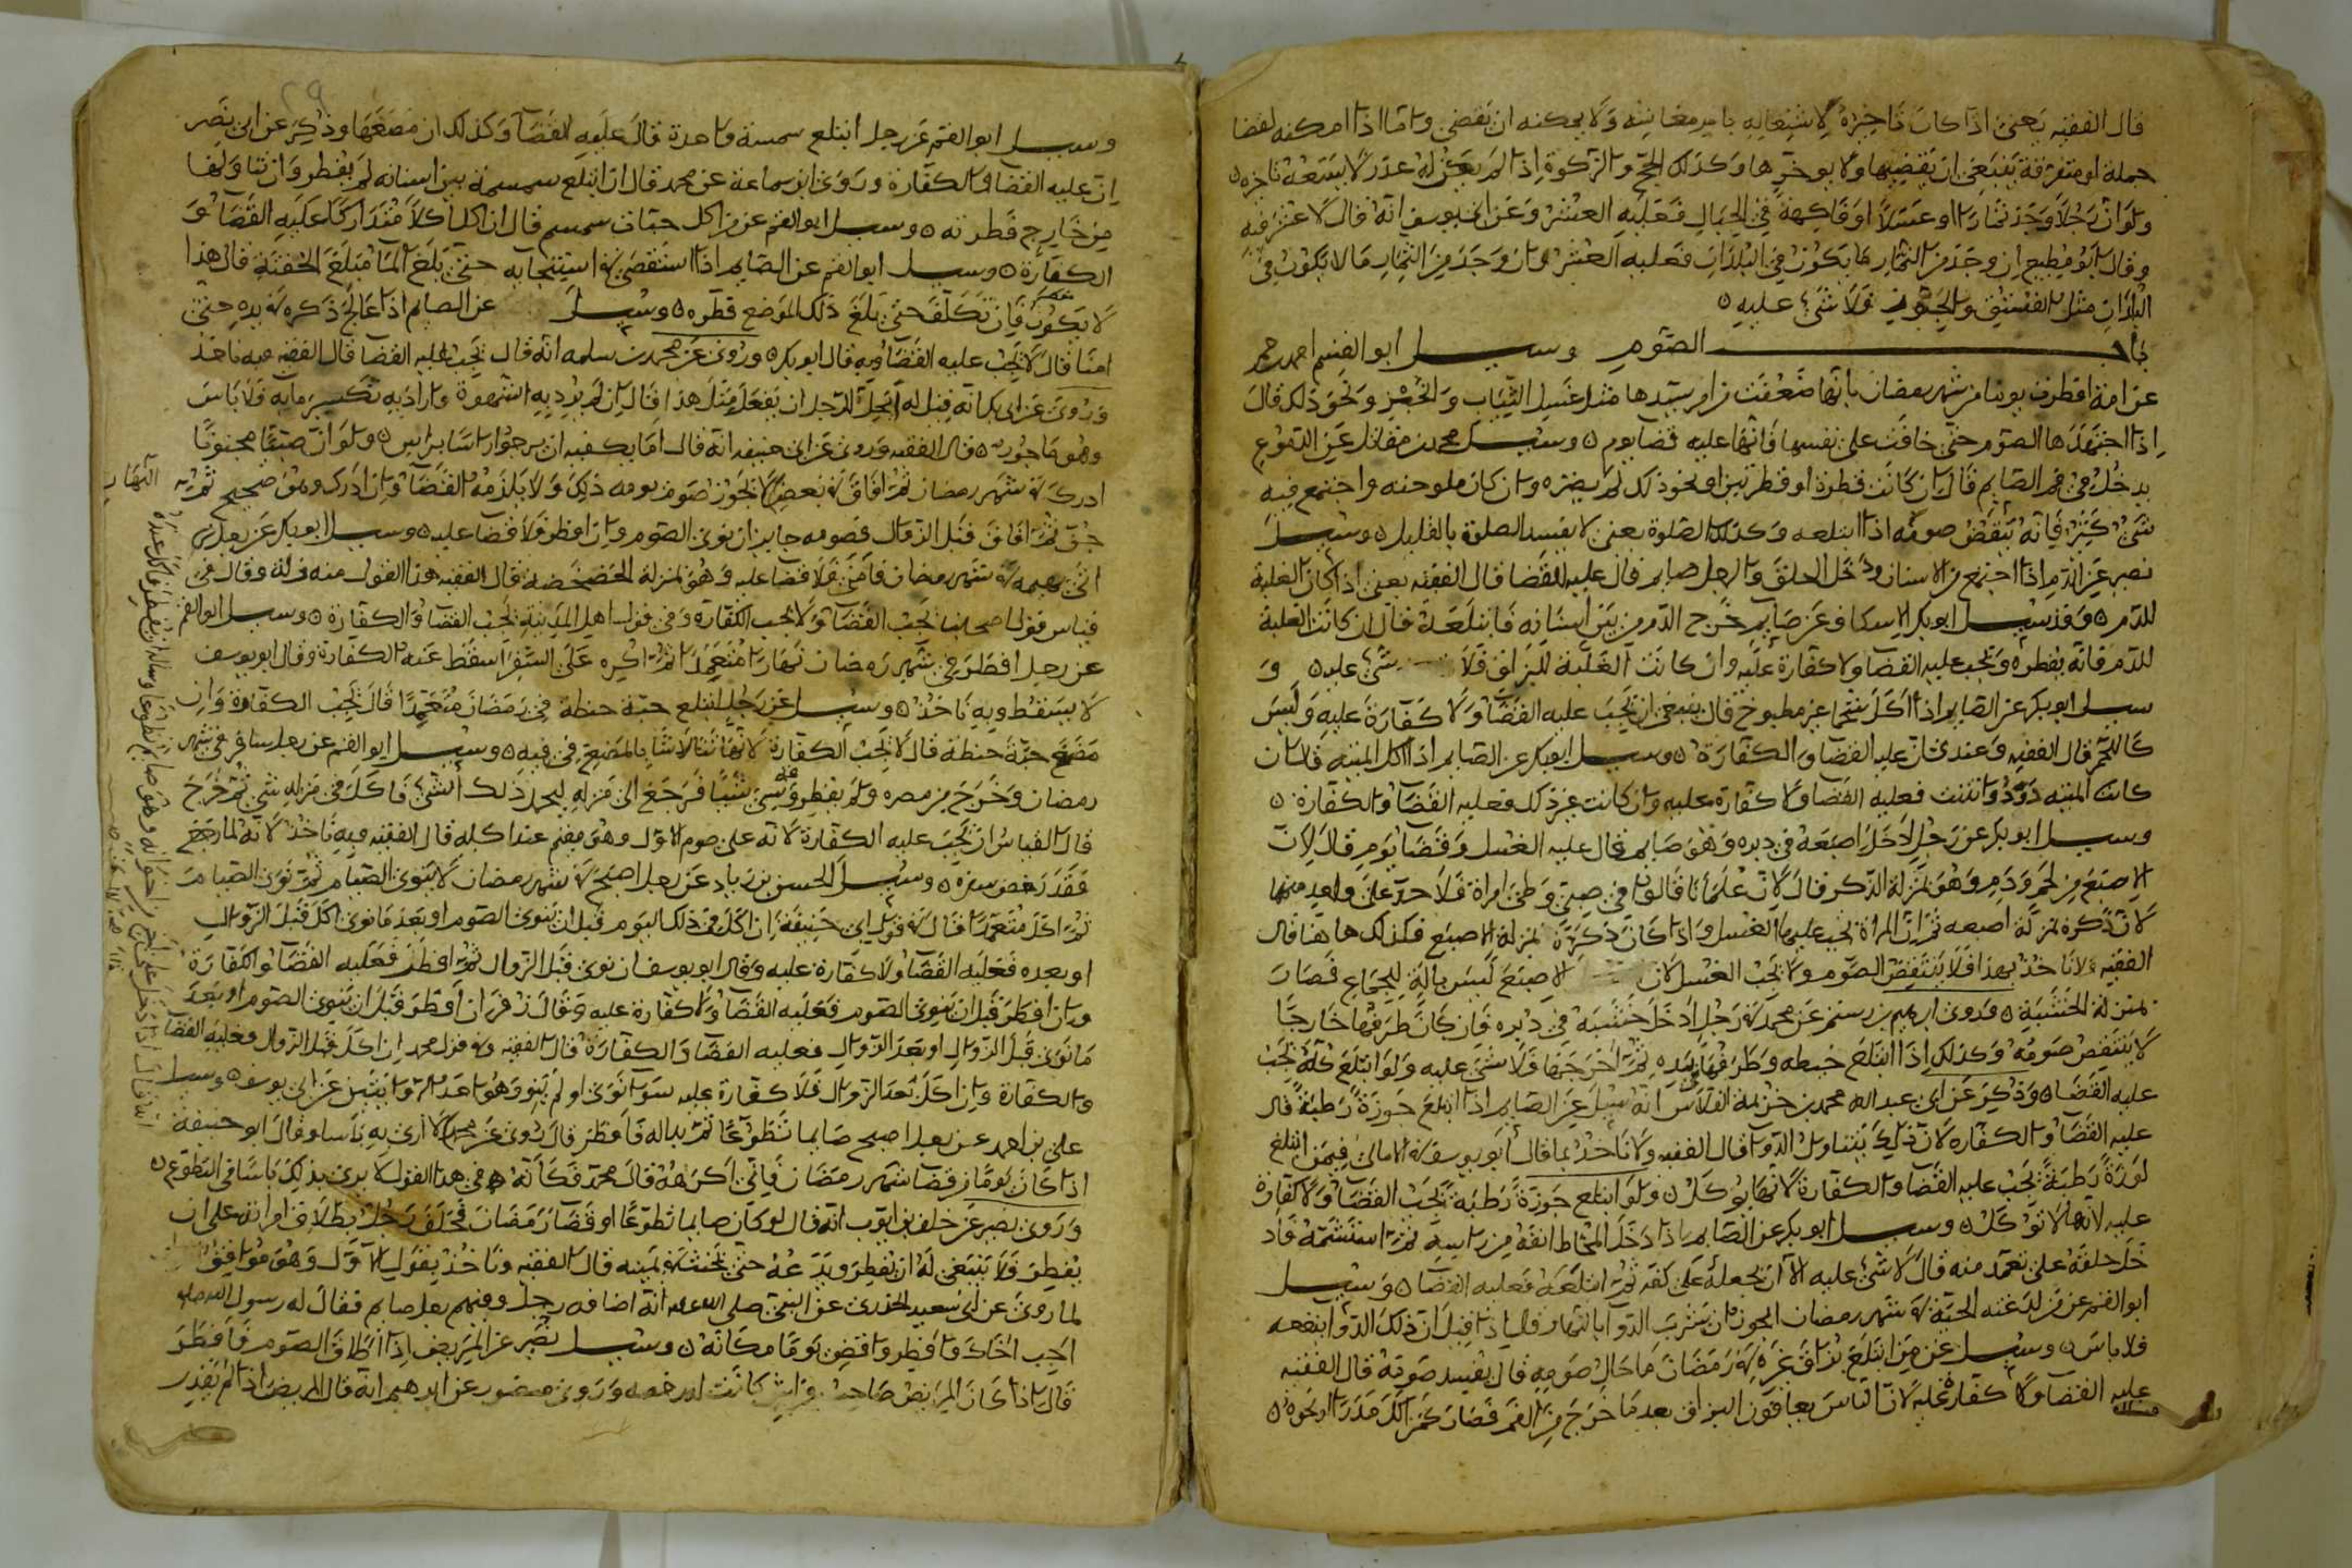 قال الفقيه يعني اذا كان تاخيره لاشتغاله بامر معاشه ولا يمكنه ان يقضي واما اذا امكنه لقضا
جملة او متفرقة ينبغي ان يقضيها ولا يوخرها وكذلك الحج والزكوة اذا لم يكن له عذر لا يسعه تاخره
ولو ان رجلا وجد ثمارا او عسلا او فاكهة في الجبال فعليه العشر وعن ابي يوسف انه قال لا عشر فيه
وقال ابو مطيع ان وجد من الثمار ما يكون في البلدان فعليه العشر وان وجد من الثمار ما لا يكون في
البلدان مثل الفستق فلا شيء عليه
باب الصوم وسيل ابو القسم احمد
عن امة افطرت يوما من شهر رمضان بانها ضعفت من امر سيدها مثل غسل الثياب والخبز ونحو ذلك قال
اذا اجتهدها الصوم حتى خافت على نفسها فانها عليه قضا يوم وسيل محمد بن مقاتل عن الدموع
يدخل في فم الصايم قال ان كانت قطرة او قطرتين او نحو ذلك لم يضره وان كان ملوحته واجتمع فيه
شيء كثير فانه ينقض صومه اذا ابتلعه وكذلك الصلوة يعني لا يفسد الصلوة بالقليل وسيل
نصير عن الدم اذا اجتمع من الاسنان ودخل الحلق والرجل صايم قال عليه القضا قال الفقيه يعني اذا كان الغلبة
للدم وقد سيل ابو بكر الاسكاف عن صايم خرج الدم من بين اسنانه فابتلعه قال ان كانت الغلبة
للدم فانه يفطره ويجب عليه القضا ولا كفارة عليه وان كانت الغلبة للبزاق فلا شيء عليه و
سيل ابو بكر عن الصايم اذا اكل شحما غير مطبوخ قال ينبغي ان يجب عليه القضا ولا كفارة عليه وليس
كاللحم قال الفقيه وعندي ان عليه القضا والكفارة وسيل ابو بكر عن الصايم اذا اكل الميتة قال ان
كانت الميتة دودوانتنت فعليه القضا ولا كفارة عليه وان كانت غير ذلك فعليه القضا والكفارة
وسيل ابو بكر عن رجل ادخل اصبعه في دبره وهو صايم قال عليه الغسل وقضا يوم قال لان
الاصبع من لحم ودم وهو بمنزلة الذكر قال لان علمانا قالوا في صبي وطي امراة فلا حد على واحد منهما
لان ذكره بمنزلة اصبعه ثم ان المراة يجب عليها الغسل واذا كان ذكره بمنزلة الاصبع فكذلك هاهنا قال
الفقيه ولا ناخذ بهذا فلا ينتقض الصوم ولا يجب الغسل لان الاصبع ليس بالة للجماع فصار
بمنزلة الخشبة وروى ابرهيم بن رستم عن محمد في رجل ادخل خشبة في دبره فان كان طرفها خارجا
لا ينتقض صومه وكذلك اذا ابتلع خيطه وطرفها بيده ثم اخرجها فلا شيء عليه ولو ابتلع كله يجب
عليه القضا وذكر عن ابي عبد الله محمد بن خزيمة القلاس انه سيل عن الصايم اذا ابتلع جوزة رطبة قال
عليه القضا والكفارة لان ذلك يتناول الدوا قال الفقيه ولا ناخذ بما قال ابو يوسف في الامالي فيمن ابتلع
لوزة رطبة يجب عليه القضا والكفارة لانها يوكل ولو ابتلع جوزة رطبة يجب القضا ولا كفارة
عليه لانها لا توكل وسيل ابو بكر عن الصايم اذا دخل المخاط انفه من راسه ثم استشمه فاد
خل حلقه على تعمد منه قال لا شيء عليه الا ان يجعله على كفه ثم ابتلعه فعليه القضا وسيل
ابو القسم عن من لدغته الحية في شهر رمضان ايجوز ان يشرب الدوا بالنهار قال اذا قيل ان ذلك الدوا ينفعه
فلا باس وسيل عن من ابتلع بزاق غيره في رمضان ما حال صومه قال يفسد صومه قال الفقيه
عليه القضا ولا كفارة عليه لان الناس يعافون البزاق بعد ما خرج من الفم فصار كمن اكل مدرا او نحوه
وسيل ابو القسم عن رجل ابتلع سمسمة واحدة قال عليه القضا وكذلك ان مضغها وذكر عن ابي نصر
ان عليه القضا والكفارة وروى ابن سماعة عن محمد قال ان ابتلع سمسمة بين اسنانه لم يفطر وان تناولها
من خارج فطرته وسيل ابو القسم عن من اكل حبات سمسم قال ان اكلها اكلا متداركا عليه القضا و
الكفارة وسيل ابو القسم عن الصايم اذا استقصى في استنجايه حتى بلغ الما مبلغ الحقنة قال هذا
لا يكون فان تكلف حتى بلغ ذلك الموضع فطره وسيل عن الصايم اذا عالج ذكره في يده حتى
امنا قال لا يجب عليه القضا وبه قال ابو بكر وروى عن محمد بن سلمه انه قال يجب عليه القضا قال الفقيه فبه ناخذ
وروى عن ابي بكر انه قيل له ايحل للرجل ان يفعل مثل هذا قال ان لم يرد به الشهوة واراد به تكسير ما به فلا باس
وهو ماجور قال الفقيه وروى عن ابي حنيفه انه قال اما يكفيه ان يرجوا راسا براس ولو ان صبيا مجنونا
ادرك في شهر رمضان ثم افاق في بعض لا يجوز صوم يومه ذلك ولا يلزمه القضا وان ادرك وهو صحيح ثم
جن ثم افاق قبل الزوال فصومه جايز ان نوى الصوم وان افطر فلا قضا عليه وسيل ابو بكر عن رجل
اتى بهيمه في شهر رمضان فامنى فلا قضا عليه وهو بمنزلة الخضخضه قال الفقيه هذا القول منه وقال في
قياس قول اصحابنا يجب القضا ولا يجب الكفارة وفي قول اهل المدينة يجب القضا والكفارة وسيل ابو القسم
عن رجل افطر في شهر رمضان نهارا متعمدا ثم اكره على السفر اسقط عنه الكفارة وقال ابو يوسف
لا يسقط وبه ناخذ وسيل عن رجل ابتلع حبة حنطة في رمضان متعمدا قال يجب الكفارة وان
مضغ حبة حنطة قال لا يجب الكفارة لانها تتلاشا بالمضغ في فيه وسيل ابو القسم عن رجل سافر في شهر
رمضان وخرج من مصره ولم يفطر ونسي شيئا فرجع الى منزله ليحمل ذلك الشيء فاكل في منزله شي ثم خرج
قال القياس ان يجب عليه الكفارة لانه على صوم الاول وهو مقيم عند اكله قال الفقيه فبه ناخذ لانه لما رجع
فقد رفض سفره وسيل الحسن بن زياد عن رجل اصبح في شهر رمضان لا ينوى الصيام ثم نوى الصيام
ثم اكل متعمدا قال في قول ابي حنيفة ان اكل في ذلك اليوم قبل ان ينوى الصوم او بعد ما نوى اكل قبل الزوال
او بعده فعليه القضا ولا كفارة عليه وقال ابو يوسف ان نوى قبل الزوال ثم افطر فعليه القضا والكفارة
وان افطر قبل ان ينوى الصوم فعليه القضا ولا كفارة عليه وقال زفر ان افطر قبل ان ينوى الصوم او بعد
ما نوى قبل الزوال او بعد الزوال فعليه القضا والكفارة قال الفقيه وفي قول محمد ان اكل قبل الزوال فعليه القضا
والكفارة وان اكل بعد الزوال فلا كفارة عليه سوا نوى او لم ينو وهو احد الروايتين عن ابي يوسف وسيل
علي بن احمد عن رجل اصبح صايما تطوعا ثم بدا له فافطر قال روى عن محمد لا ارى به باسا وقال ابو حنيفة
اذا كان يوما من قضا شهر رمضان فاني اكرهه قال محمد فكانه في هذا القول لا يرى بذلك باسا في التطوع
وروى نصير عن خلف بن ايوب انه قال لو كان صايما تطوعا او قضا رمضان فحلف رجل بطلاق امراته على ان
يفطر فلا ينبغي له ان يفطر ويدعه حتى يحنث في يمينه قال الفقيه وناخذ بقول الاول وهو موافق
لما روى عن ابي سعيد الخدري عن النبي صلى الله عليه انه اضافه رجل وفيهم رجل صايم فقال له رسول الله صلى
اجب اخاك وافطر واقض يوما مكانه وسيل نصير عن المريض اذا اطاق الصوم فافطر
قال اذا كان المريض صاحب فراش كانت له رخصه وروى منصور عن ابرهيم انه قال المريض اذا لم يقدر